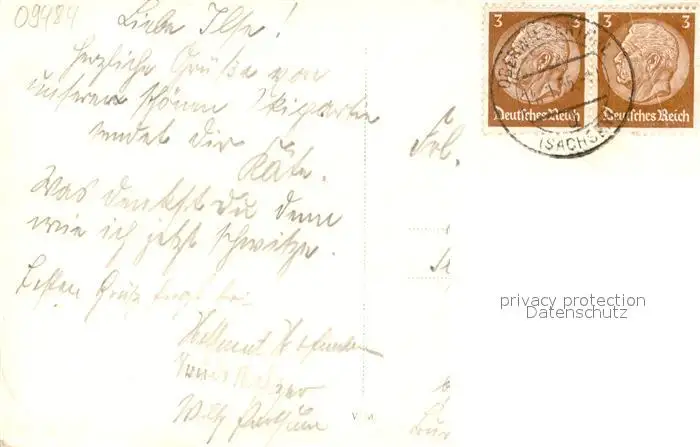 09484
Liebe Ilse!
Herzliche Grüße von
unserer schönen Skipartie
sendet dir
Käte.
Was denkst Du denn
wie ich jetzt schwitze.
Besten Gruß
Hellmut
Willy
Frl.
3 3 3 3
Deutsches Reich Deutsches Reich
OBERWIESENTHAL
(SACHS
privacy protection
Datenschutz